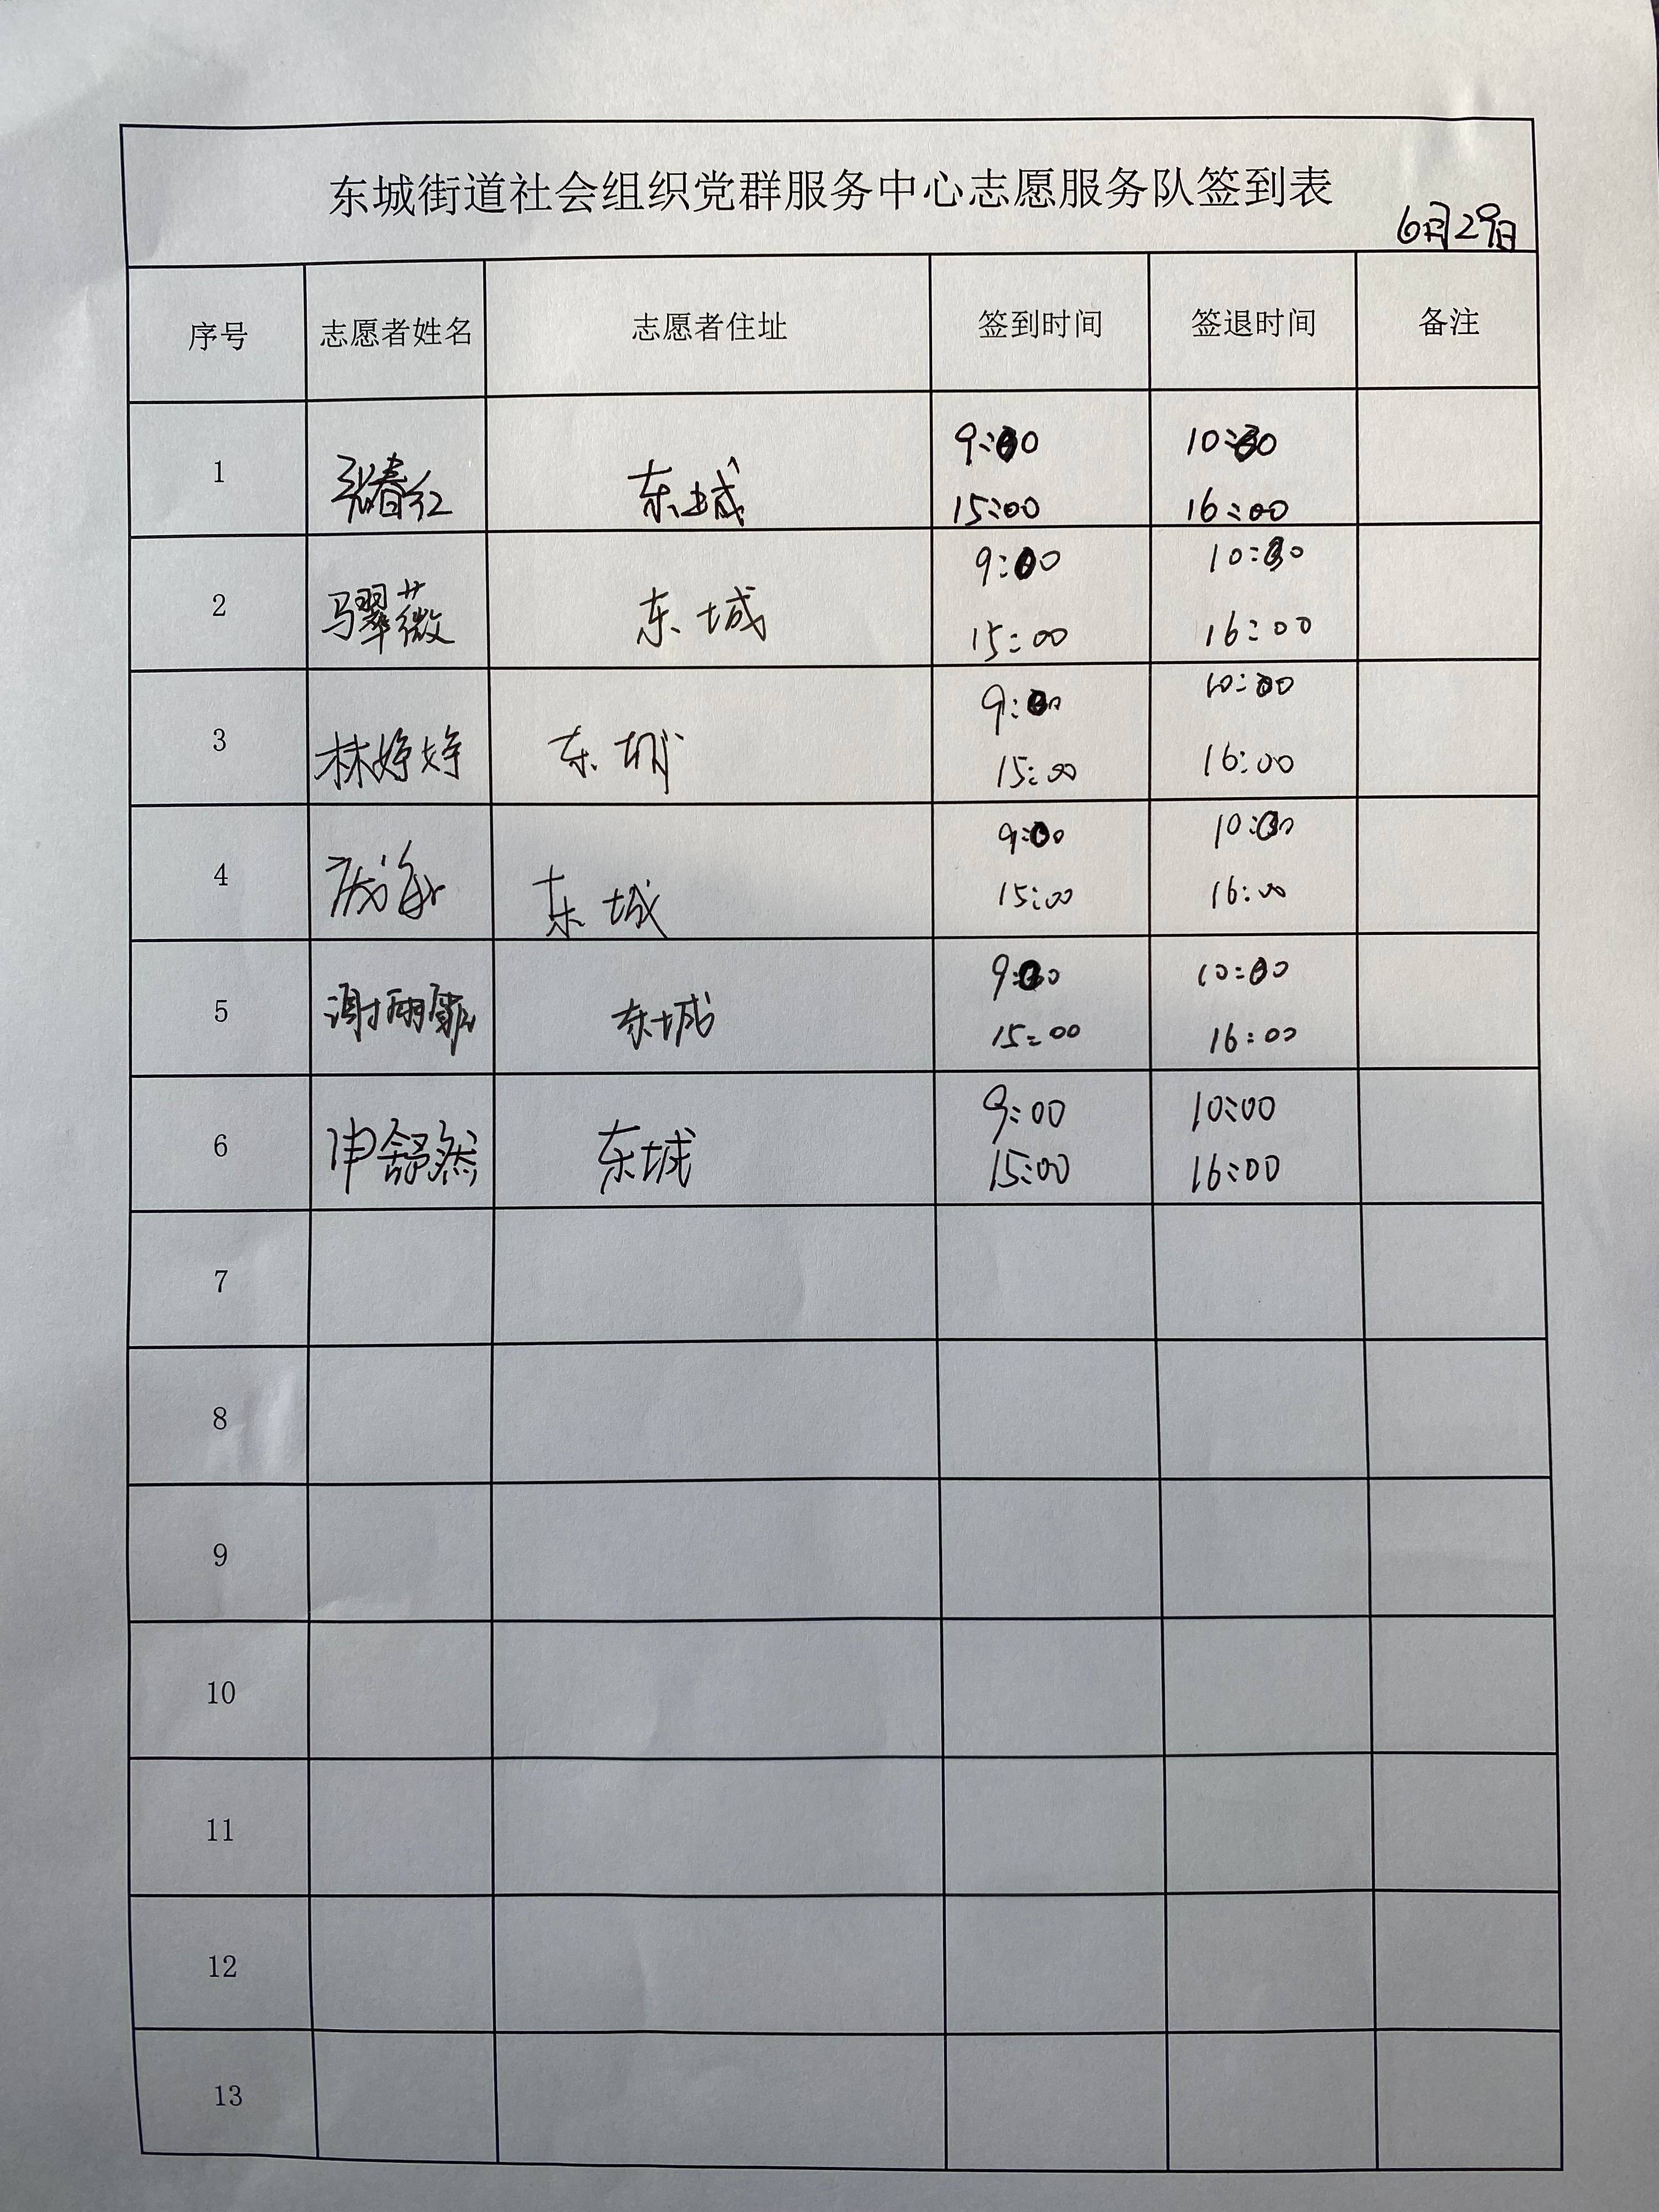 东城街道社会组织党群服务中心志愿服务队签到表
6月29日
序号 志愿者姓名 志愿者住址 签到时间 签退时间 备注
1 张春红 东城 9:00 10:00
15:00 16:00
2 马翠薇 东城 9:00 10:00
15:00 16:00
3 林婷婷 东城 9:00 10:00
15:00 16:00
4 东城 9:00 10:00
15:00 16:00
5 谢雨 东城 9:00 10:00
15:00 16:00
6 申舒然 东城 9:00 10:00
15:00 16:00
7
8
9
10
11
12
13